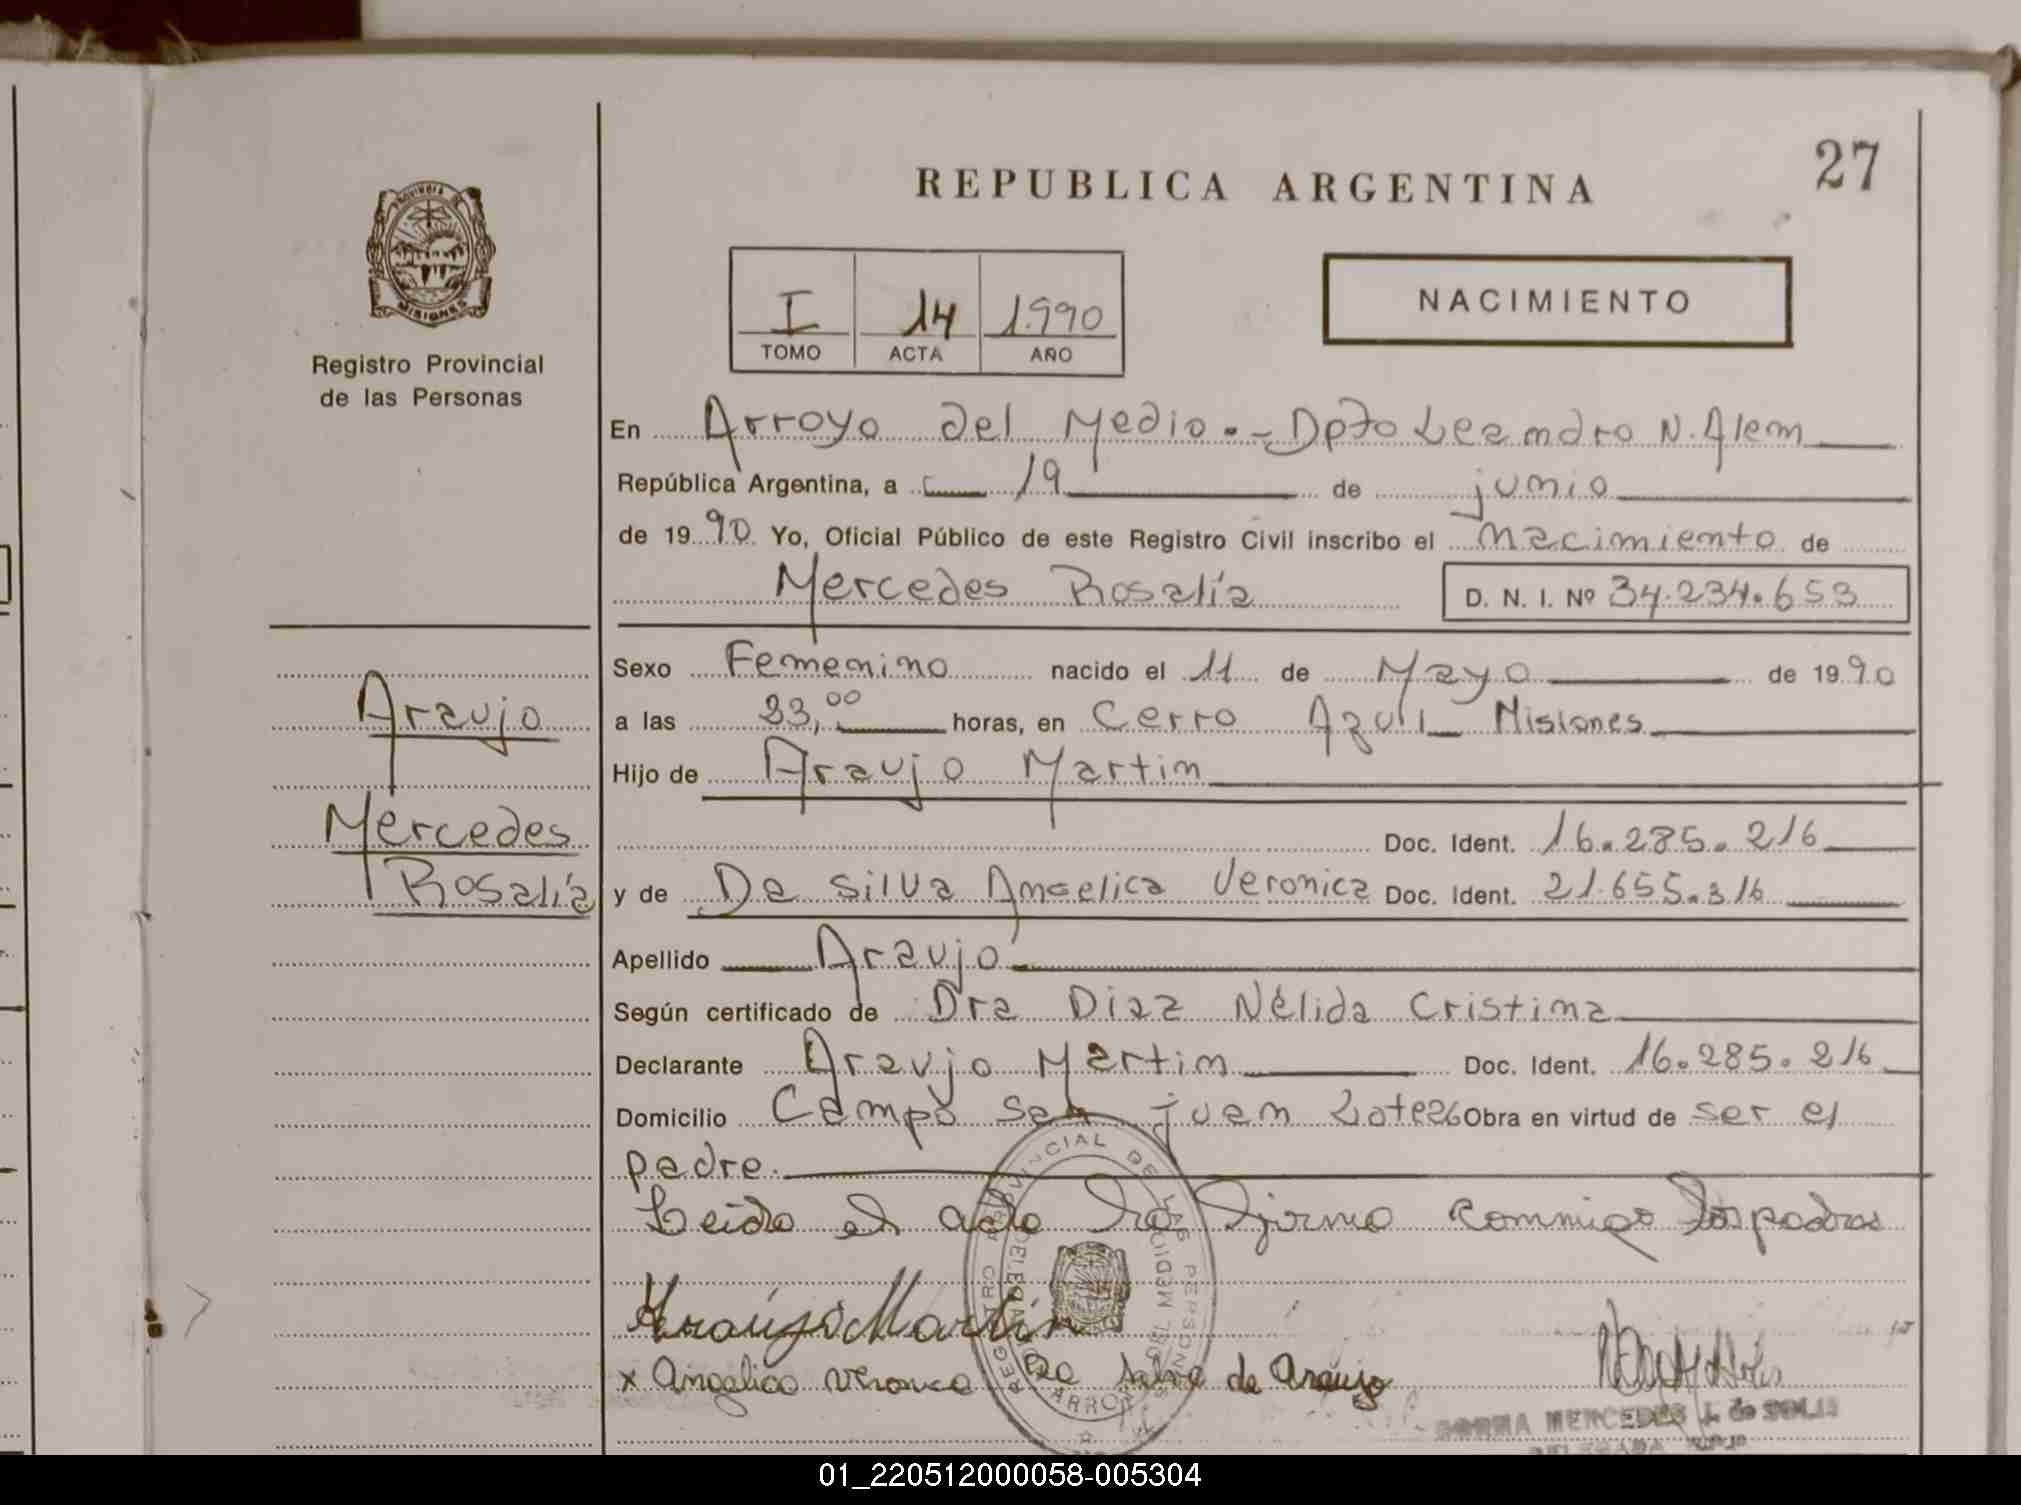 27
REPUBLICA ARGENTINA
PROVINCIA DE
MISIONES
I 14 1.990
TOMO ACTA AÑO
NACIMIENTO
Registro Provincial
de las Personas
En Arroyo del Medio.- Dpto Leandro N. Alem
República Argentina, a 19 de junio
de 1990 Yo, Oficial Público de este Registro Civil inscribo el nacimiento de
Mercedes Rosalía D. N. I. Nº 34.234.653
Sexo Femenino nacido el 11 de Mayo de 1990
a las 23,00 horas, en Cerro Azul Misiones
Hijo de Araujo Martin
Doc. Ident. 16.285.216
y de Da Silva Angelica Veronica Doc. Ident. 21.655.316
Apellido Araujo
Según certificado de Dra Diaz Nélida Cristina
Declarante Araujo Martin Doc. Ident. 16.285.216
Domicilio Campo San juan Lote 26 Obra en virtud de ser el
padre.
Leida el acta la firma conmigo los padres
Araujo Martin
x Angelica Veronica Da Silva de Araujo
Araujo
Mercedes
Rosalía
REGISTRO PROVINCIAL DE LAS PERSONAS
DELEGACION ARROYO DEL MEDIO
MERCEDES
01_220512000058-005304